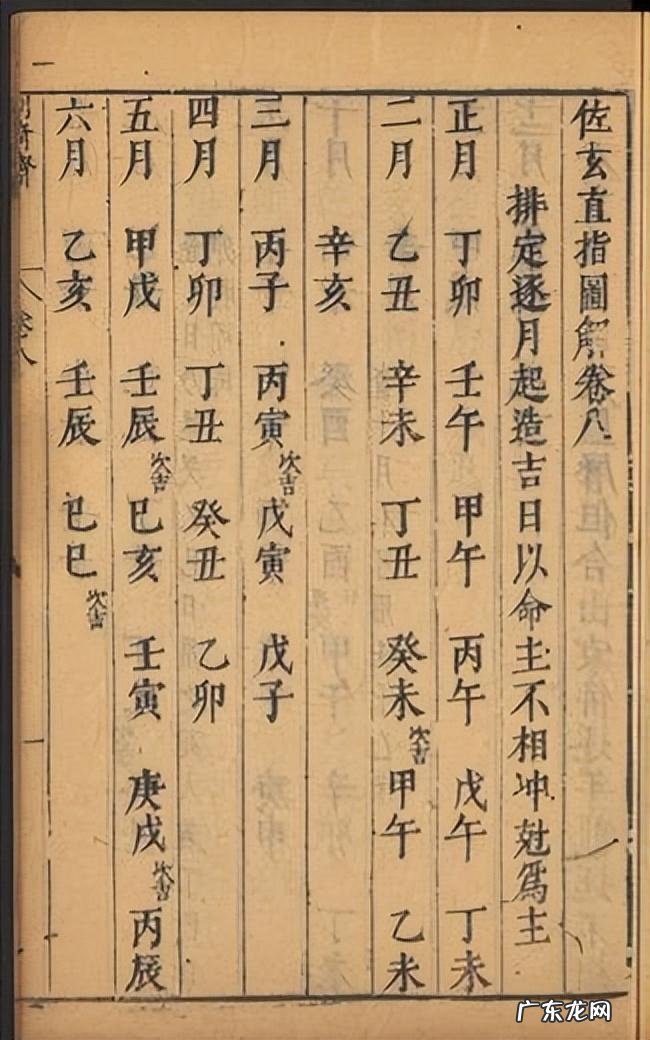 佐玄直指圖解卷八
排定逐月起造吉日以命主不相冲尅爲主
正月 丁卯 壬午 甲午 丙午 戊午 丁未
二月 乙丑 辛未 丁丑 癸未次吉 甲午 乙未
辛亥
三月 丙子 丙寅次吉 戊寅 戊子
四月 丁卯 丁丑 癸丑 乙卯
五月 甲戌 壬辰次吉 已亥 壬寅 庚戌次吉 丙辰
六月 乙亥 壬辰 已巳次吉
卷八
一
广东龙网